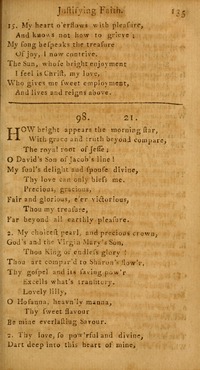 Justifying Faith. 135
15. My heart o'erflows with pleasure,
And knows not how to grieve;
My song bespeaks the treasure
Of joy, I now conceive.
The Sun, whose height enjoyment
I feel is Christ, my love,
Who gives me sweet employment,
And lives and reigns above.
98. 21.
HOW bright appears the morning star,
With grace and truth beyond compare,
The royal root of Jesse;
O David's Son of Jacob's line!
My soul's delight and spouse divine,
Thy love can only bless me.
Precious, gracious,
Fair and glorious, e'er victorious,
Thou my treasure,
Far beyond all earthly pleasure.
2. My choicest pearl, and precious crown,
God's and the Virgin Mary's Son,
Thou King of endless glory!
Thou art compar'd to Sharon's flow'r,
Thy gospel and its saving pow'r
Excells what's transitory.
Lovely lilly,
O Hosanna, heav'nly manna,
Thy sweet flavour
Be mine everlasting favour.
2. Thy love, so pow'rful and divine,
Dart deep into this heart of mine,